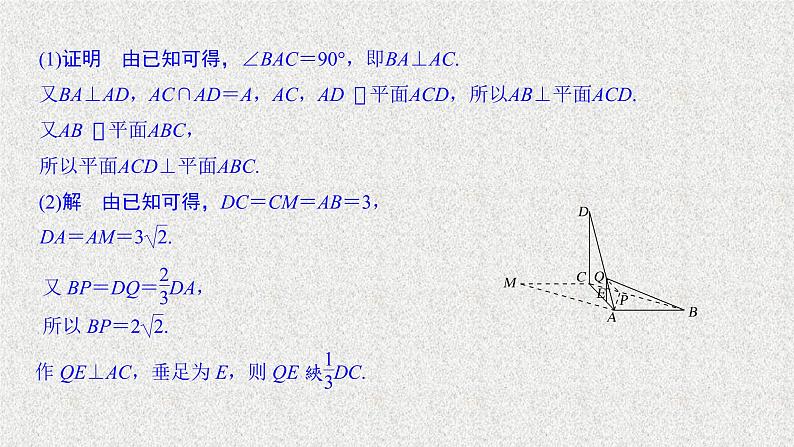 (1)证明　由已知可得，∠BAC＝90°，即BA⊥AC.
又BA⊥AD，AC∩AD＝A，AC，AD ▯平面ACD，所以AB⊥平面ACD.
又AB ▯平面ABC，
所以平面ACD⊥平面ABC.
(2)解　由已知可得，DC＝CM＝AB＝3，
DA＝AM＝3√2.
又 BP＝DQ＝2/3DA，
所以 BP＝2√2.
作 QE⊥AC，垂足为 E，则 QE 綊1/3DC.
D
M
C
Q
E
P
A
B